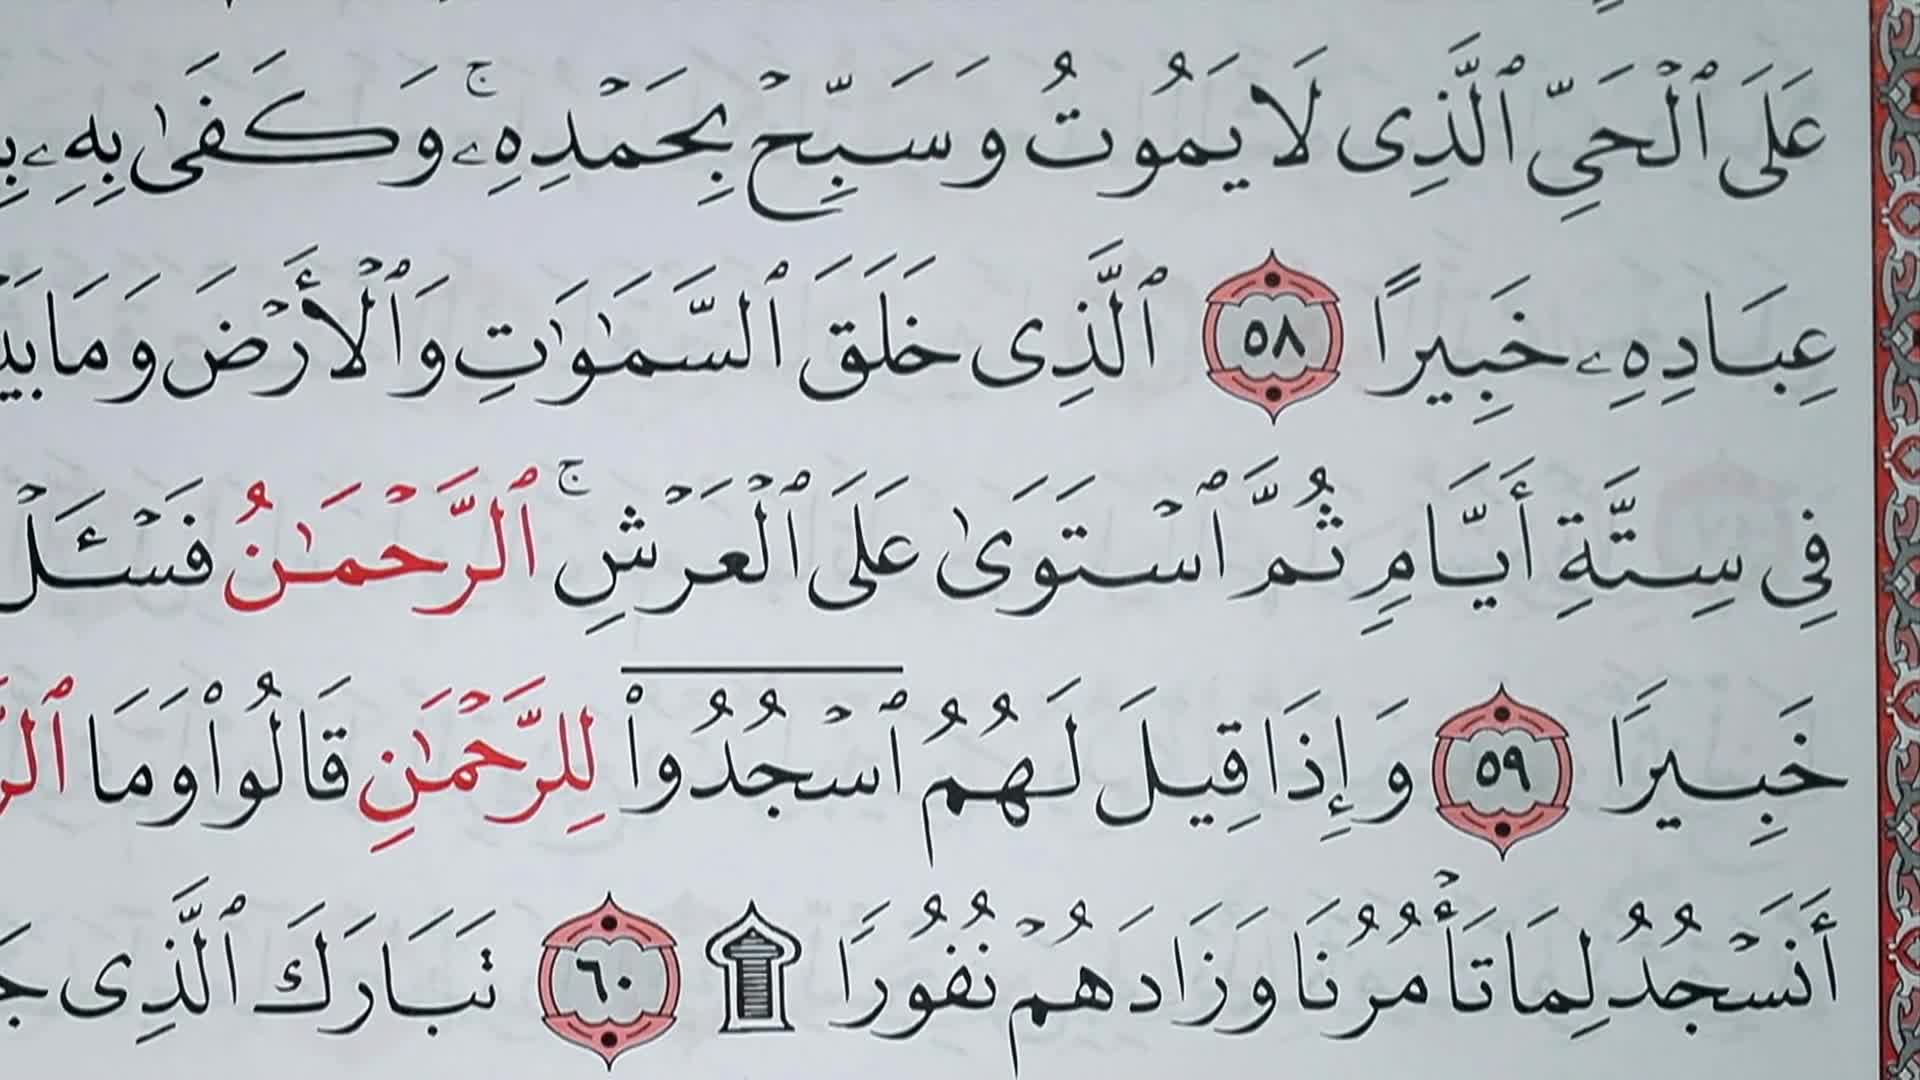 عَلَى ٱلْحَىِّ ٱلَّذِى لَا يَمُوتُ وَسَبِّحْ بِحَمْدِهِۦ ۚ وَكَفَىٰ بِهِۦ
عِبَادِهِۦ خَبِيرًا ٥٨ ٱلَّذِى خَلَقَ ٱلسَّمَٰوَٰتِ وَٱلْأَرْضَ وَمَا
فِى سِتَّةِ أَيَّامٍ ثُمَّ ٱسْتَوَىٰ عَلَى ٱلْعَرْشِ ۚ ٱلرَّحْمَٰنُ فَسْـَٔلْ
خَبِيرًا ٥٩ وَإِذَا قِيلَ لَهُمُ ٱسْجُدُوا۟ لِلرَّحْمَٰنِ قَالُوا۟ وَمَا
أَنَسْجُدُ لِمَا تَأْمُرُنَا وَزَادَهُمْ نُفُورًا ۩ ٦٠ تَبَارَكَ ٱلَّذِى